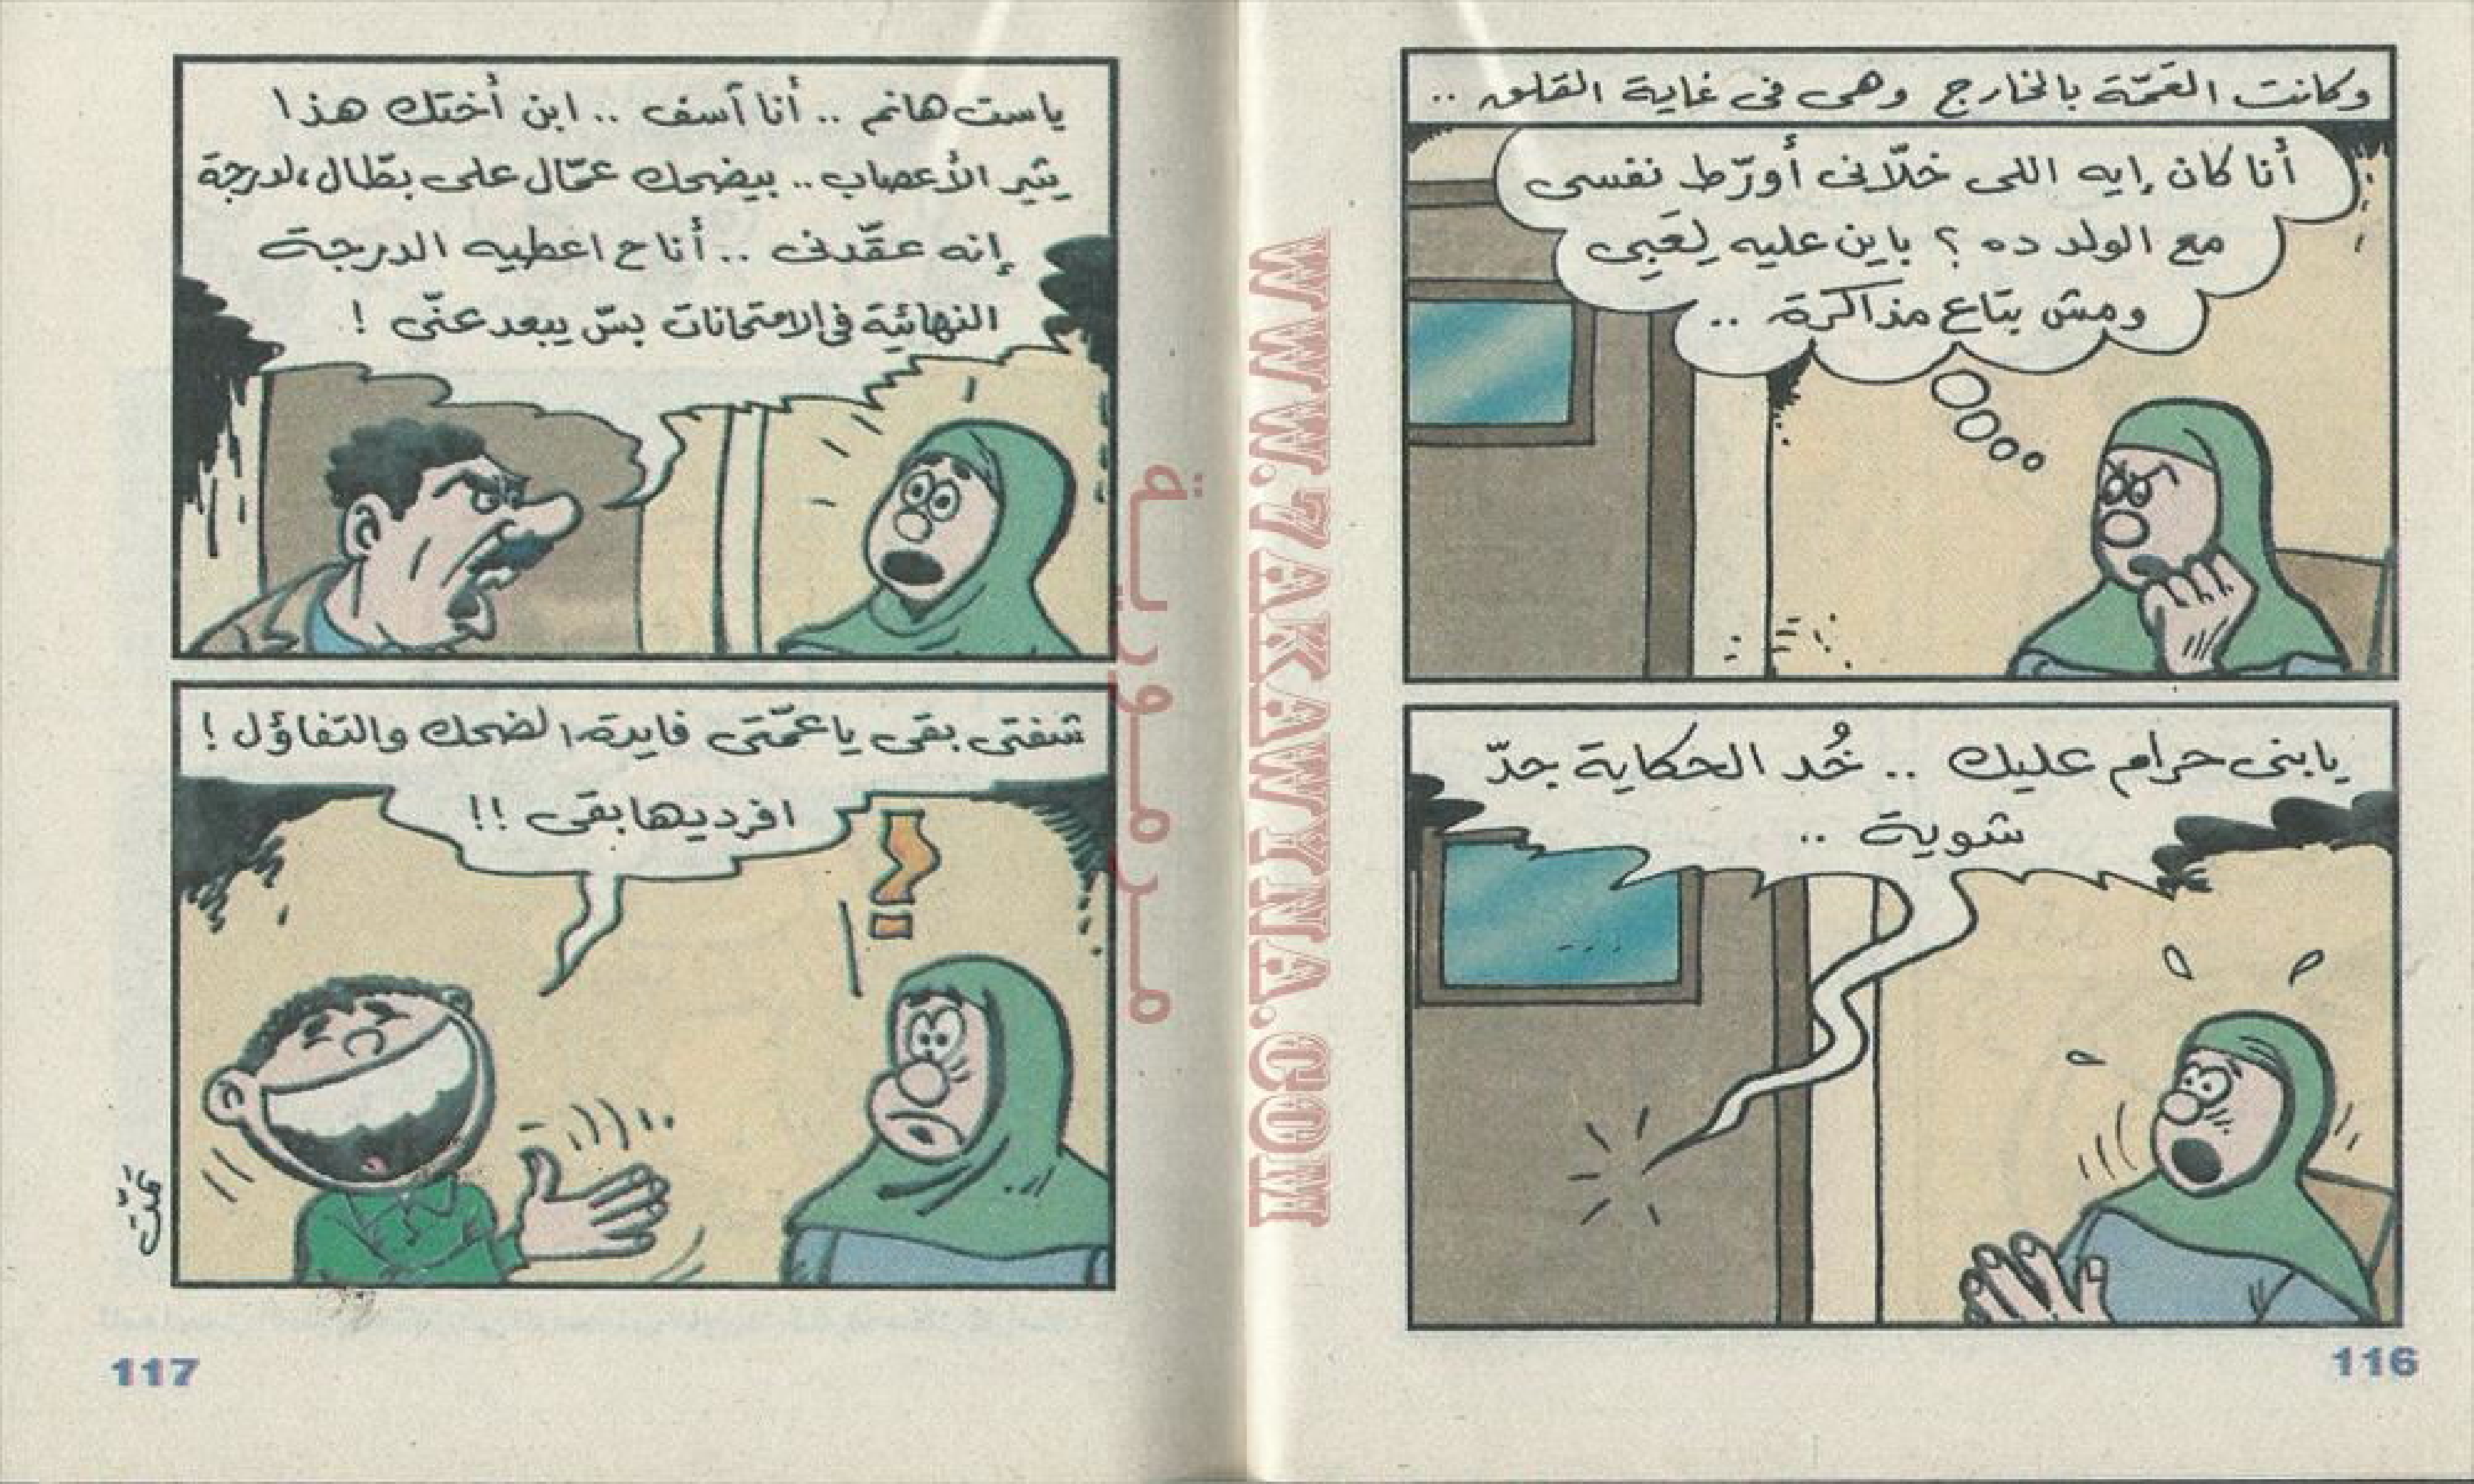 وكانت العَمّة بالخارج وهى فى غاية القلق ..
أنا كان إيه اللى خلّانى أورّط نفسى
مع الولد ده ؟ باين عليه لِعَبِى
ومش بتاع مذاكرة ..
يابنى حرام عليك .. خُد الحكاية جدّ
شوية ..
116
ياست هانم .. أنا آسف .. ابن أختك هذا
يثير الأعصاب .. بيضحك عمّال على بطّال، لدرجة
إنه عقّدنى .. أنا ح اعطيه الدرجة
النهائية فى الامتحانات بسّ يبعد عنّى !
شفتى بقى ياعمّتى فايدة الضحك والتفاؤل !
افرديها بقى !!
؟
117
مدرمورية
WWW.7AKAWYNA.COM